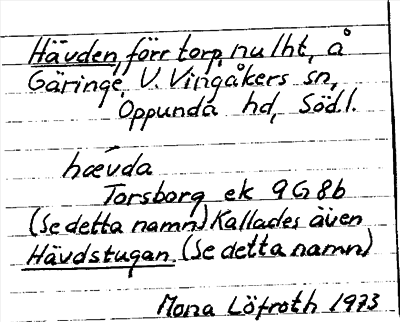 Hävden, förr torp, nu lht, å
Gäringe, V. Vingåkers sn,
Oppunda hd, Södl.
hævda
Torsborg ek 9G8b
(Se detta namn) Kallades även
Hävdstugan (Se detta namn)
Mona Löfroth 1973